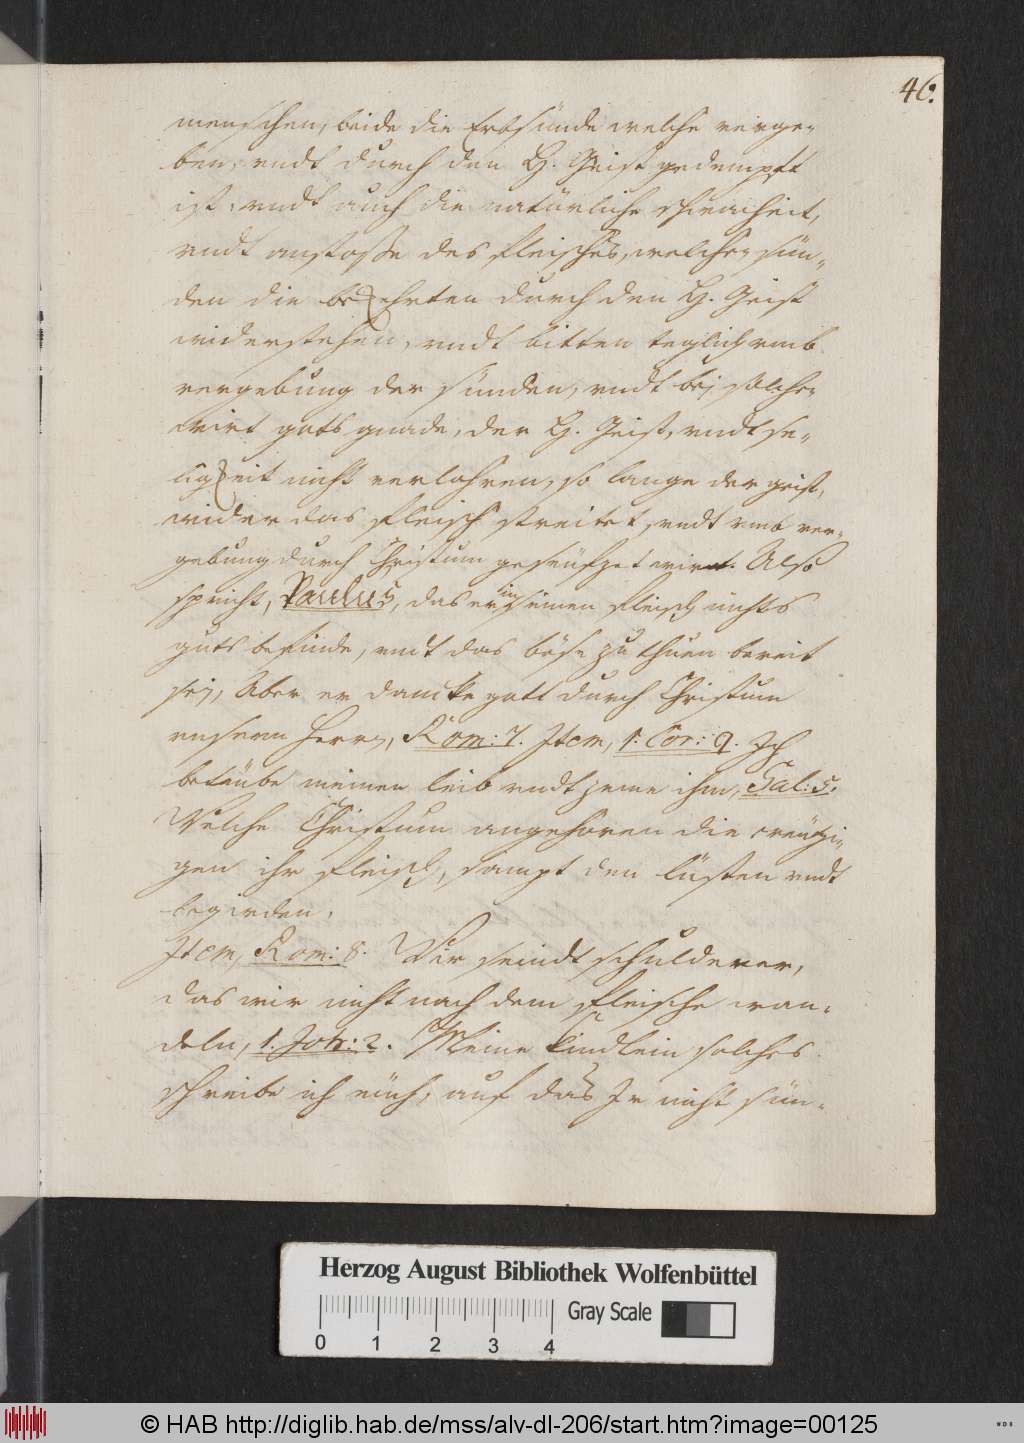 46.
menschen, beide die Erbsünde welche verge-
ben, undt durch den H. Geist gedempft
ist, undt auch die natürliche schwacheit,
undt anstosse des fleisches, welcher sün-
den die bekehrten durch den H. Geist
widerstehen, undt bitten teglich umb
vergebung der sünden, undt bej solcher
wirt gots gnade, der H. Geist, undt se-
ligkeit nicht verlohren, so lange der geist,
wider das fleisch streitet, undt umb ver-
gebung durch Christum geseüfzet wirt. Also
spricht, Paulus, das er in seinem fleisch nichts
guts befinde, undt das böse zu thuen bereit
sej, Aber er dancke gott durch Christum
unsern Herrn, Rom: 7. Item, 1. Cor: 9. Ich
betäube meinen leib undt zeme ihn, Gal: 5.
Welche Christum angehören die creützi-
gen ihr fleisch, sampt den lüsten undt
begirden.
Item, Rom: 8. Wir seindt schuldener,
das wir nicht nach dem fleische wan-
deln, 1. Joh: 2. Meine kindlein solches
schreibe ich eüch, auf das Ir nicht sün-
Herzog August Bibliothek Wolfenbüttel
Gray Scale
0 1 2 3 4
© HAB http://diglib.hab.de/mss/alv-dl-206/start.htm?image=00125